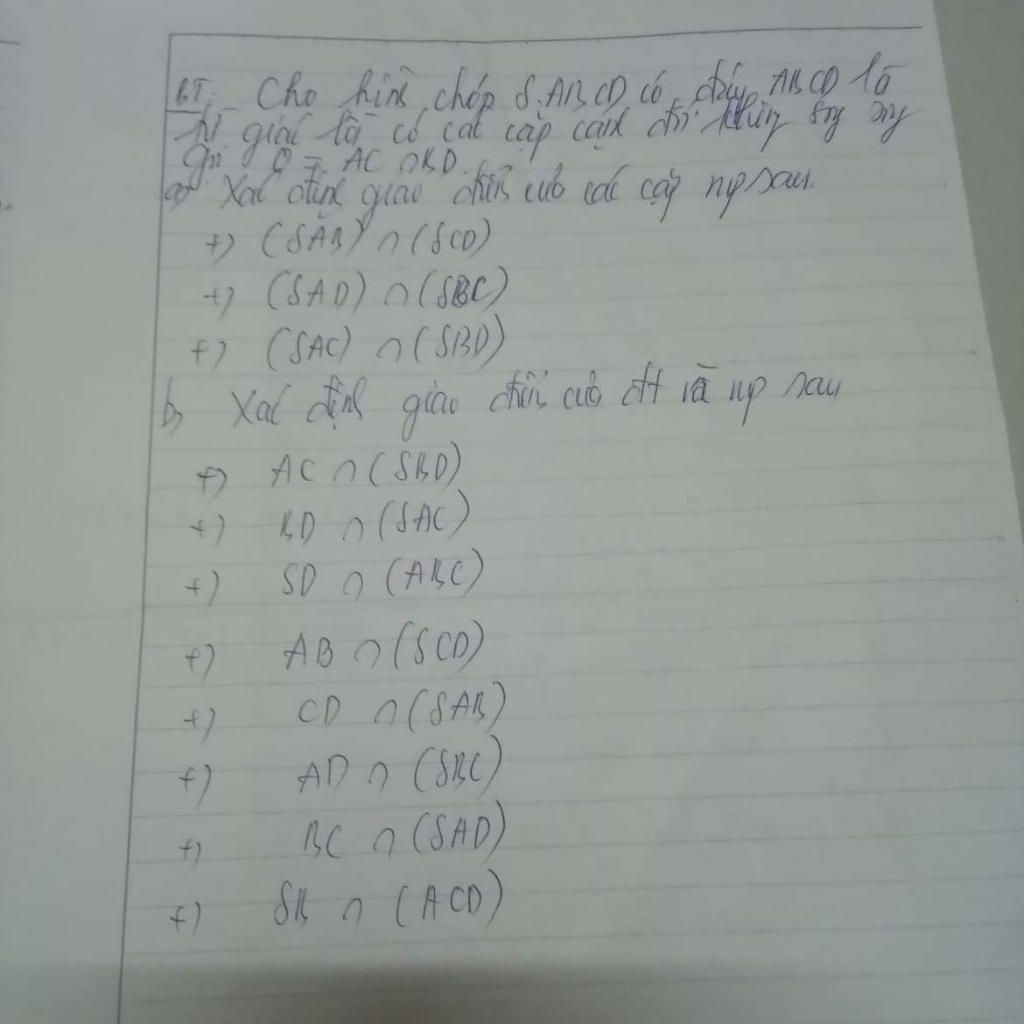 BT: Cho hình chóp S.ABCD có đáy ABCD là
tứ giác lồi có các cặp cạnh đối không sog sog
Gọi O = AC ∩ BD.
a) Xác định giao tuyến của các cặp mp sau.
+) (SAB) ∩ (SCD)
+) (SAD) ∩ (SBC)
+) (SAC) ∩ (SBD)
b, Xác định giao điểm của đt và mp sau
+) AC ∩ (SBD)
+) BD ∩ (SAC)
+) SD ∩ (ABC)
+) AB ∩ (SCD)
+) CD ∩ (SAB)
+) AD ∩ (SBC)
+) BC ∩ (SAD)
+) SB ∩ (ACD)